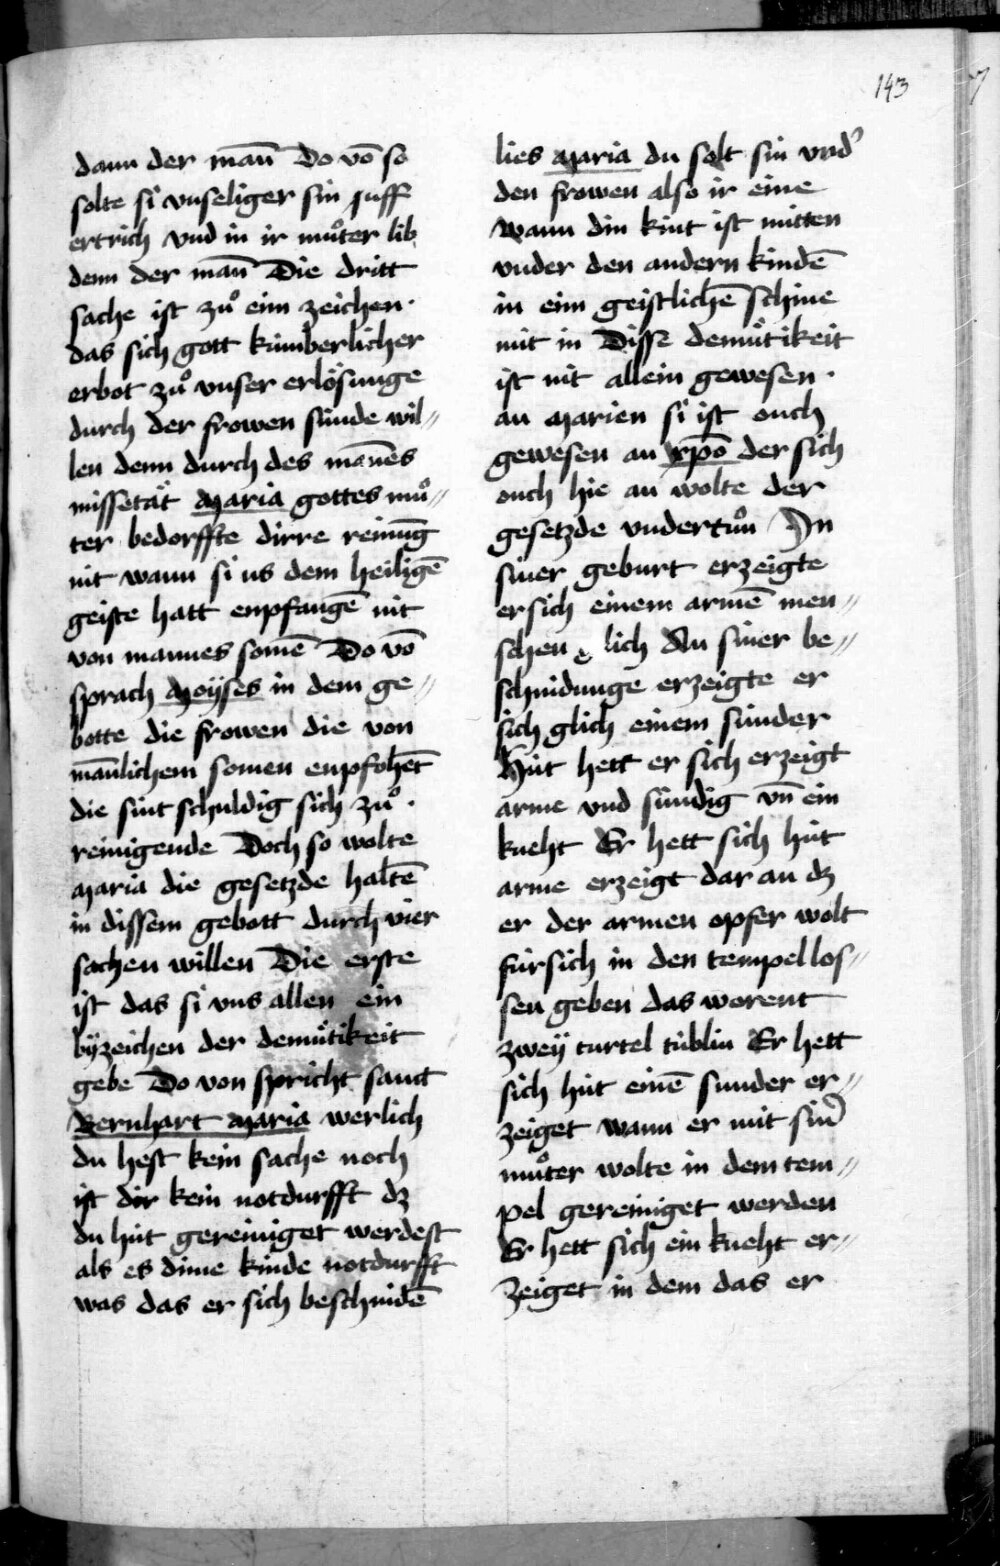 143
dann der man̄ Do vō so
solte si vnseliger sin vff
ertrich vnd in ir můter lib
denn der man̄ Die dritt
sache ist zů eim zeichen·
das sich gott kúmberlicher
erbot zů vnser erlösunge
durch der frowen súnde wil⸗
len denn durch des manēs
missetät maria gottes mů⸗
ter bedorffte dirre reinūg
nit wann si us dem heiligē
geiste hatt enpfangē nit
von mannes somē Do vō
sprach moÿses in dem ge⸗
botte die frowen die von
man̄lichem somen enpfohēt
die sint schuldig sich zů·
reinigende Doch so wolte
maria die gesetzde haltē
in dissem gebott durch vier
sachen willen Die erste
ist das si vns allen ein
bÿzeichen der demuͤtikeit
gebe Do von spricht sanct
Bernhart maria werlich
du hest kein sache noch
ist dir kein notdurfft dz
du hút gereiniget werdest
als es dime kinde notdurfft
was das er sich beschnidē
lies maria du solt sin vnd'
den frowen also ir eine
wann din kint ist mitten
vnder den andern kindē
in eim geistlichē schine
mit in Disse demuͤtikeit
ist nit allein gewesen·
an marien si ist ouch
gewesen an xp̄o der sich
ouch hie an wolte der
gesetzde vndertůn In
siner geburt erzeigte
er sich einem armē men⸗
schen lich An siner be⸗
schnidunge erzeigte er
sich glich einem súnder
Hút hett er sich erzeigt
arme vnd súndig vn̄ ein
kneht Er hett sich hút
arme erzeigt dar an dz
er der armen opfer wolt
fúr sich in den tempel los⸗
sen geben das worent
zweÿ turtel túblin Er hett
sich hút einē sunder er⸗
zeiget wann er mit sin'
můter wolte in dem tem⸗
pel gereiniget werden
Er hett sich ein kneht er⸗
zeiget in dem das er